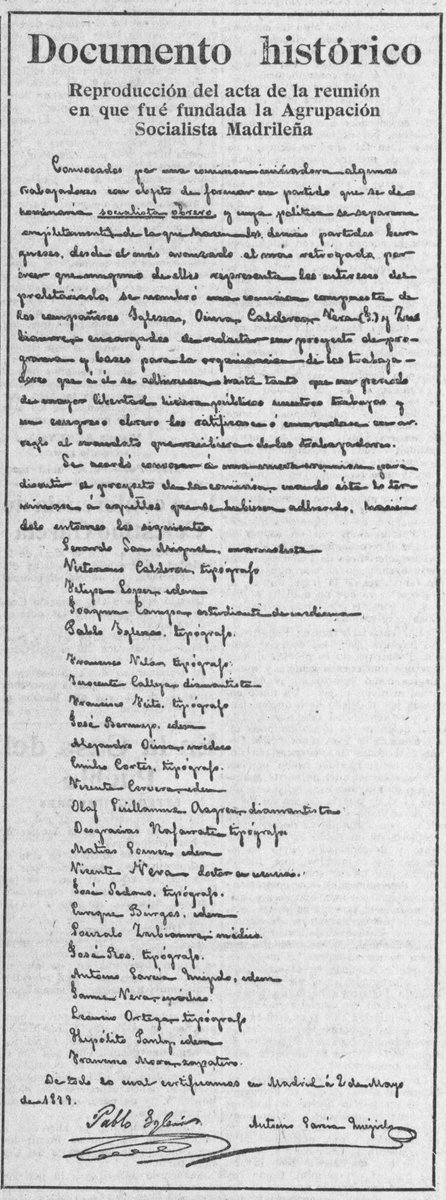 Documento histórico
Reproducción del acta de la reunión
en que fué fundada la Agrupación
Socialista Madrileña
Convocados por una comision iniciadora algunos
trabajadores con objeto de formar un partido que se de-
nominaria socialista obrero y cuya politica se separara
completamente de la que hacen los demás partidos bur-
gueses, desde el más avanzado al más retrogado, por
creer que ninguno de ellos representa los intereses del
proletariado, se nombró una comision compuesta de
los compañeros Iglesias, Ocina, Calderon, Vera (J.) y Zubi
biaurre, encargados de redactar un proyecto de pro-
grama y bases para la organizacion de los trabaja-
dores que á él se adhiriesen hasta tanto que un periodo
de mayor libertad hiciera públicos nuestros trabajos y
un congreso obrero los ratificase ó enmendase con ar-
reglo al mandato que recibiera de los trabajadores.
Se acordó convocar á una nueva reunion para
discutir el proyecto de la comision, cuando ésta lo ter-
minase á aquellos que se hubiesen adherido, hacien
dolo entonces los siguientes
Gerardo San Miguel, marmolista
Victoriano Calderon, tipógrafo
Felipe Lopez, idem
Joaquin estudiante de medicina
Pablo Iglesias, tipógrafo.
Francisco tipógrafo.
Inocente Calleja, diamantista
Francisco tipógrafo
José Bermejo, idem
Alejandro Ocina médico
Emilio Cortés, tipógrafo.
Vicente Cervera, idem
Olaf diamantista
Deogracias Nafarrate tipógrafo
Matías Gomez idem
Vicente Vera doctor en ciencias.
José tipógrafo.
Enrique Búrgos, idem
Gonzalo Zubiaurre, médico.
José Ros, tipógrafo.
Antonio García Quejido, idem
Jaime Vera, médico.
Lean Ortega, tipógrafo
Hipólito Pauly, idem
Francisco Mora zapatero.
De todo lo cual certificamos en Madrid á 2 de Mayo
de 1879.
Pablo Iglesias Antonio García Quejido